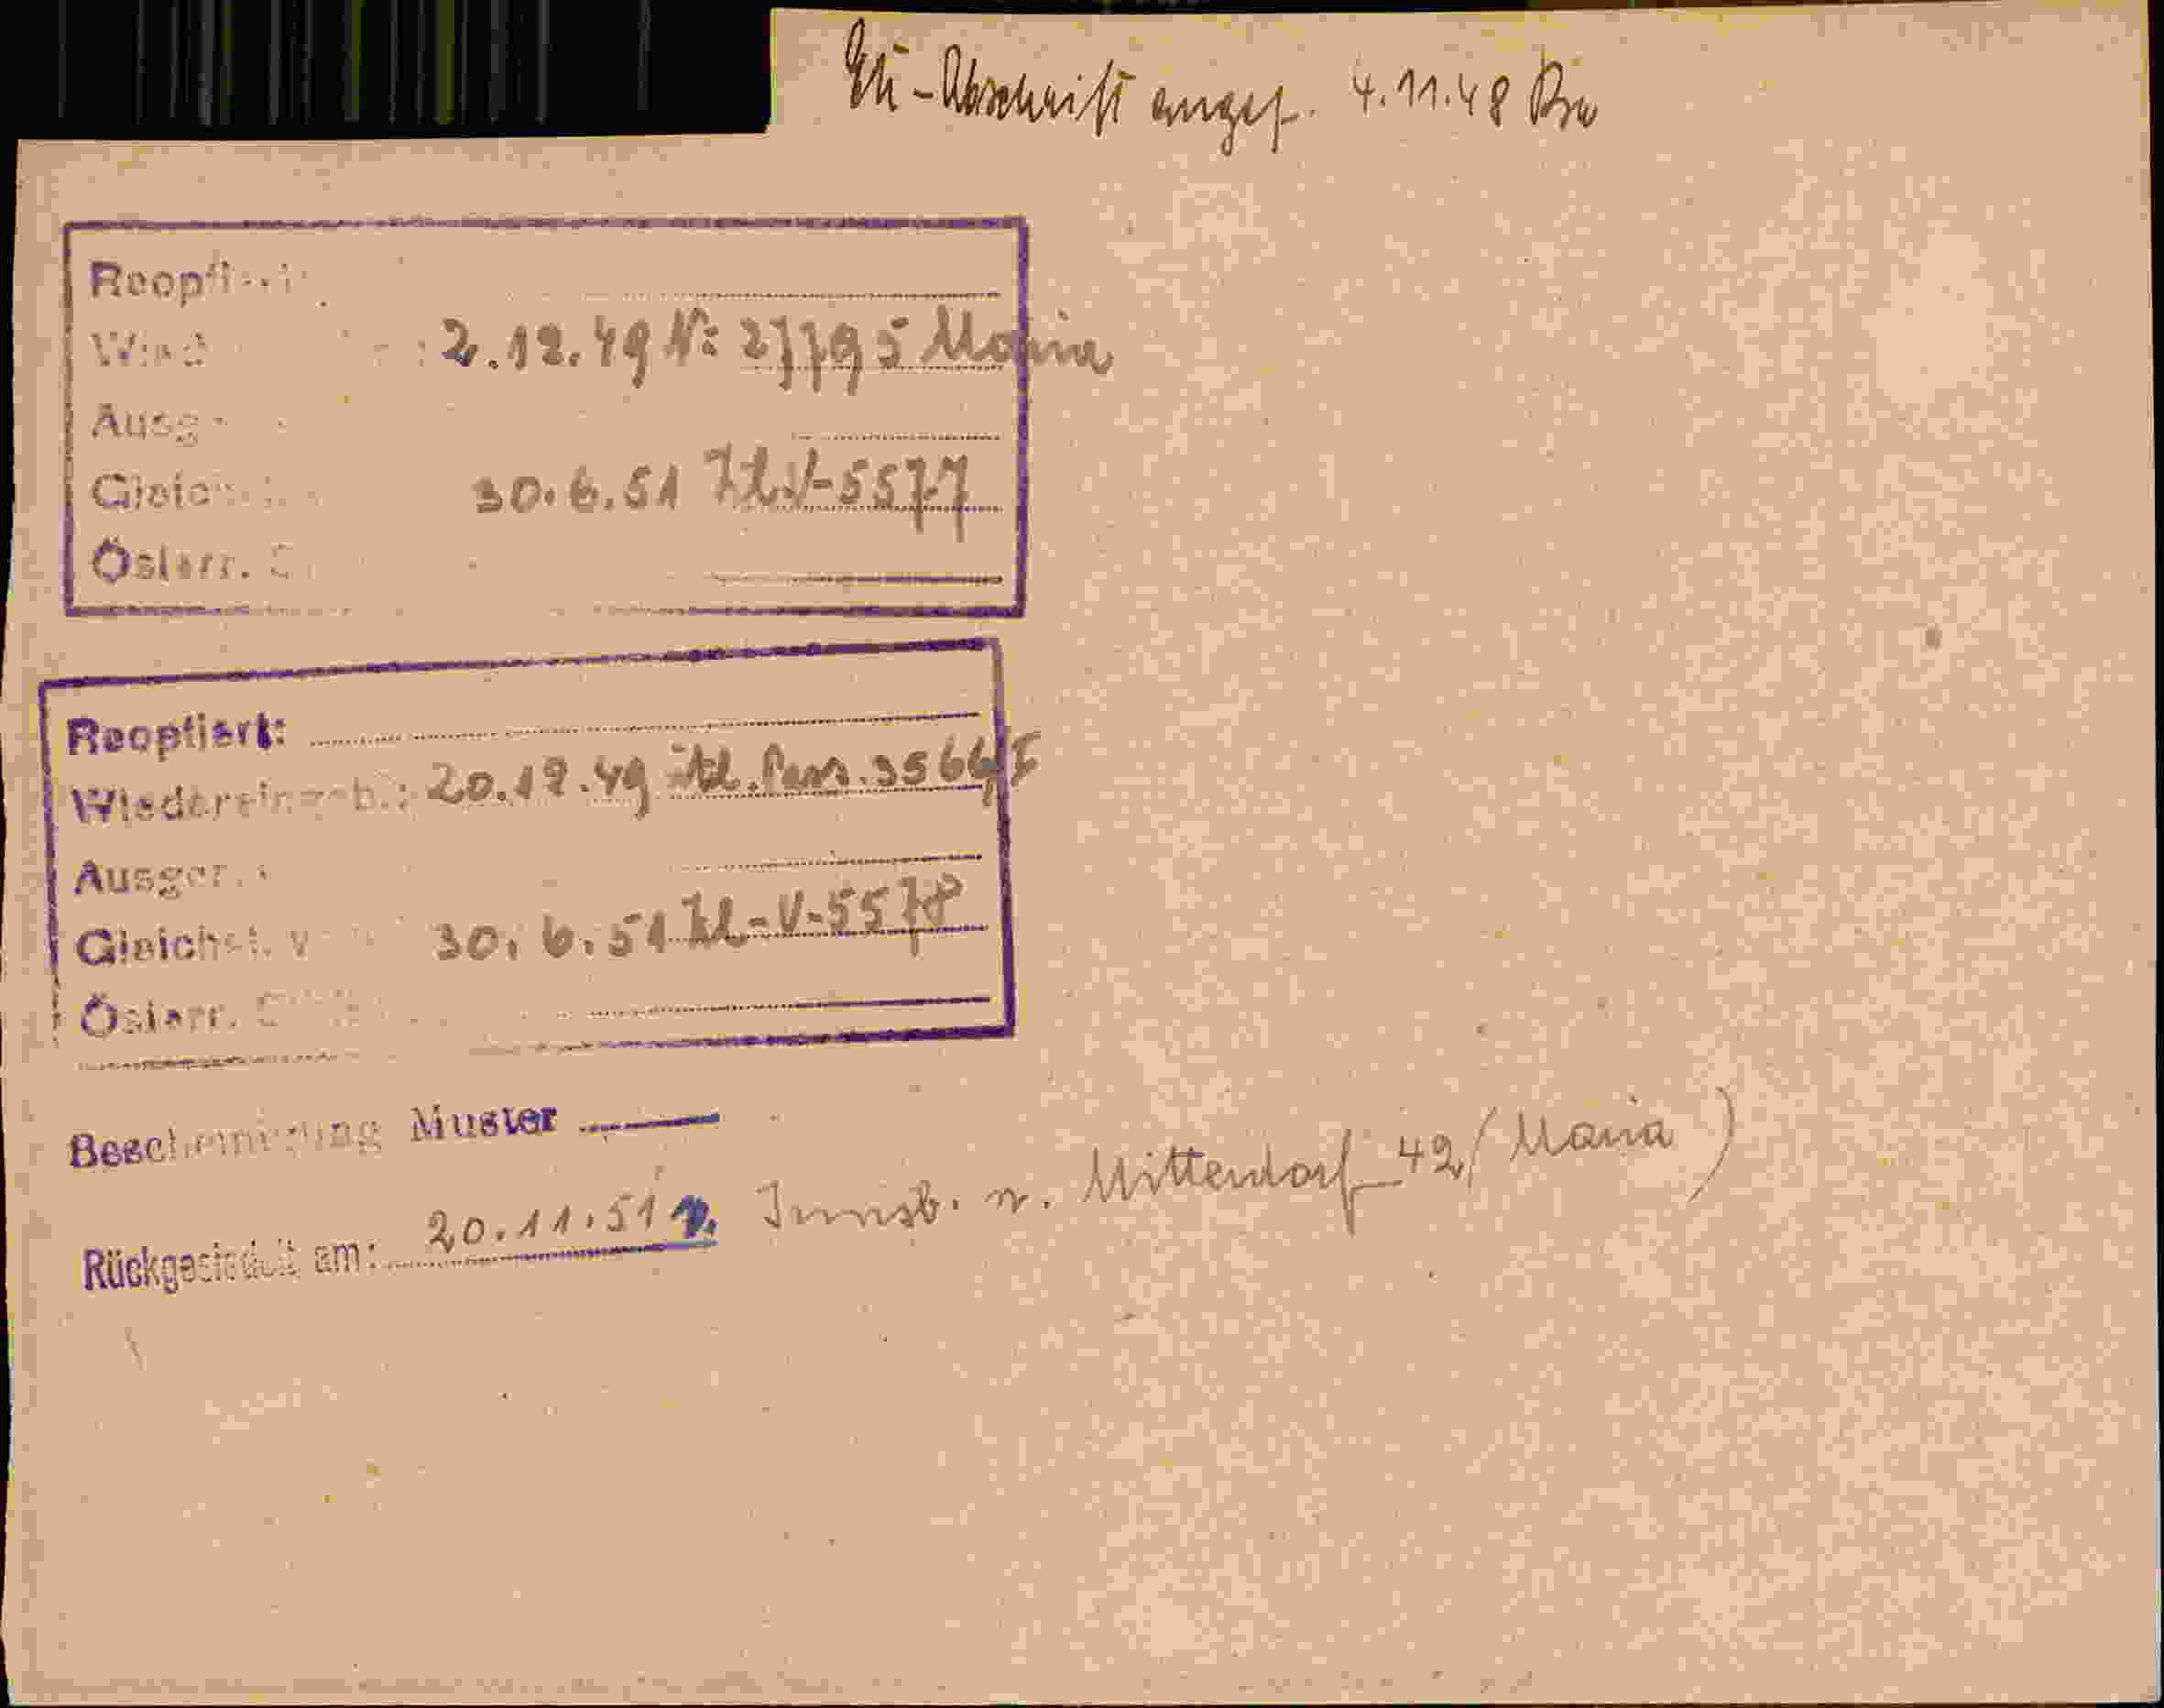 -Abschrift angef. 4.11.48
Reoptiert
2.12.49 Nº 27795 Maria
Ausg
30.6.51 Zl.V-5577
Österr.
Reoptiert:
Wiedereingeb.: 20.12.49 ital. Pass. 3566/I
Ausger.
Gleichst. v 30.6.51 Zl-V-5578
Österr.
Bescheinigung Muster
Rückgesiedelt am: 20.11.51 Innsb. n. Mittendorf 42 (Maria)